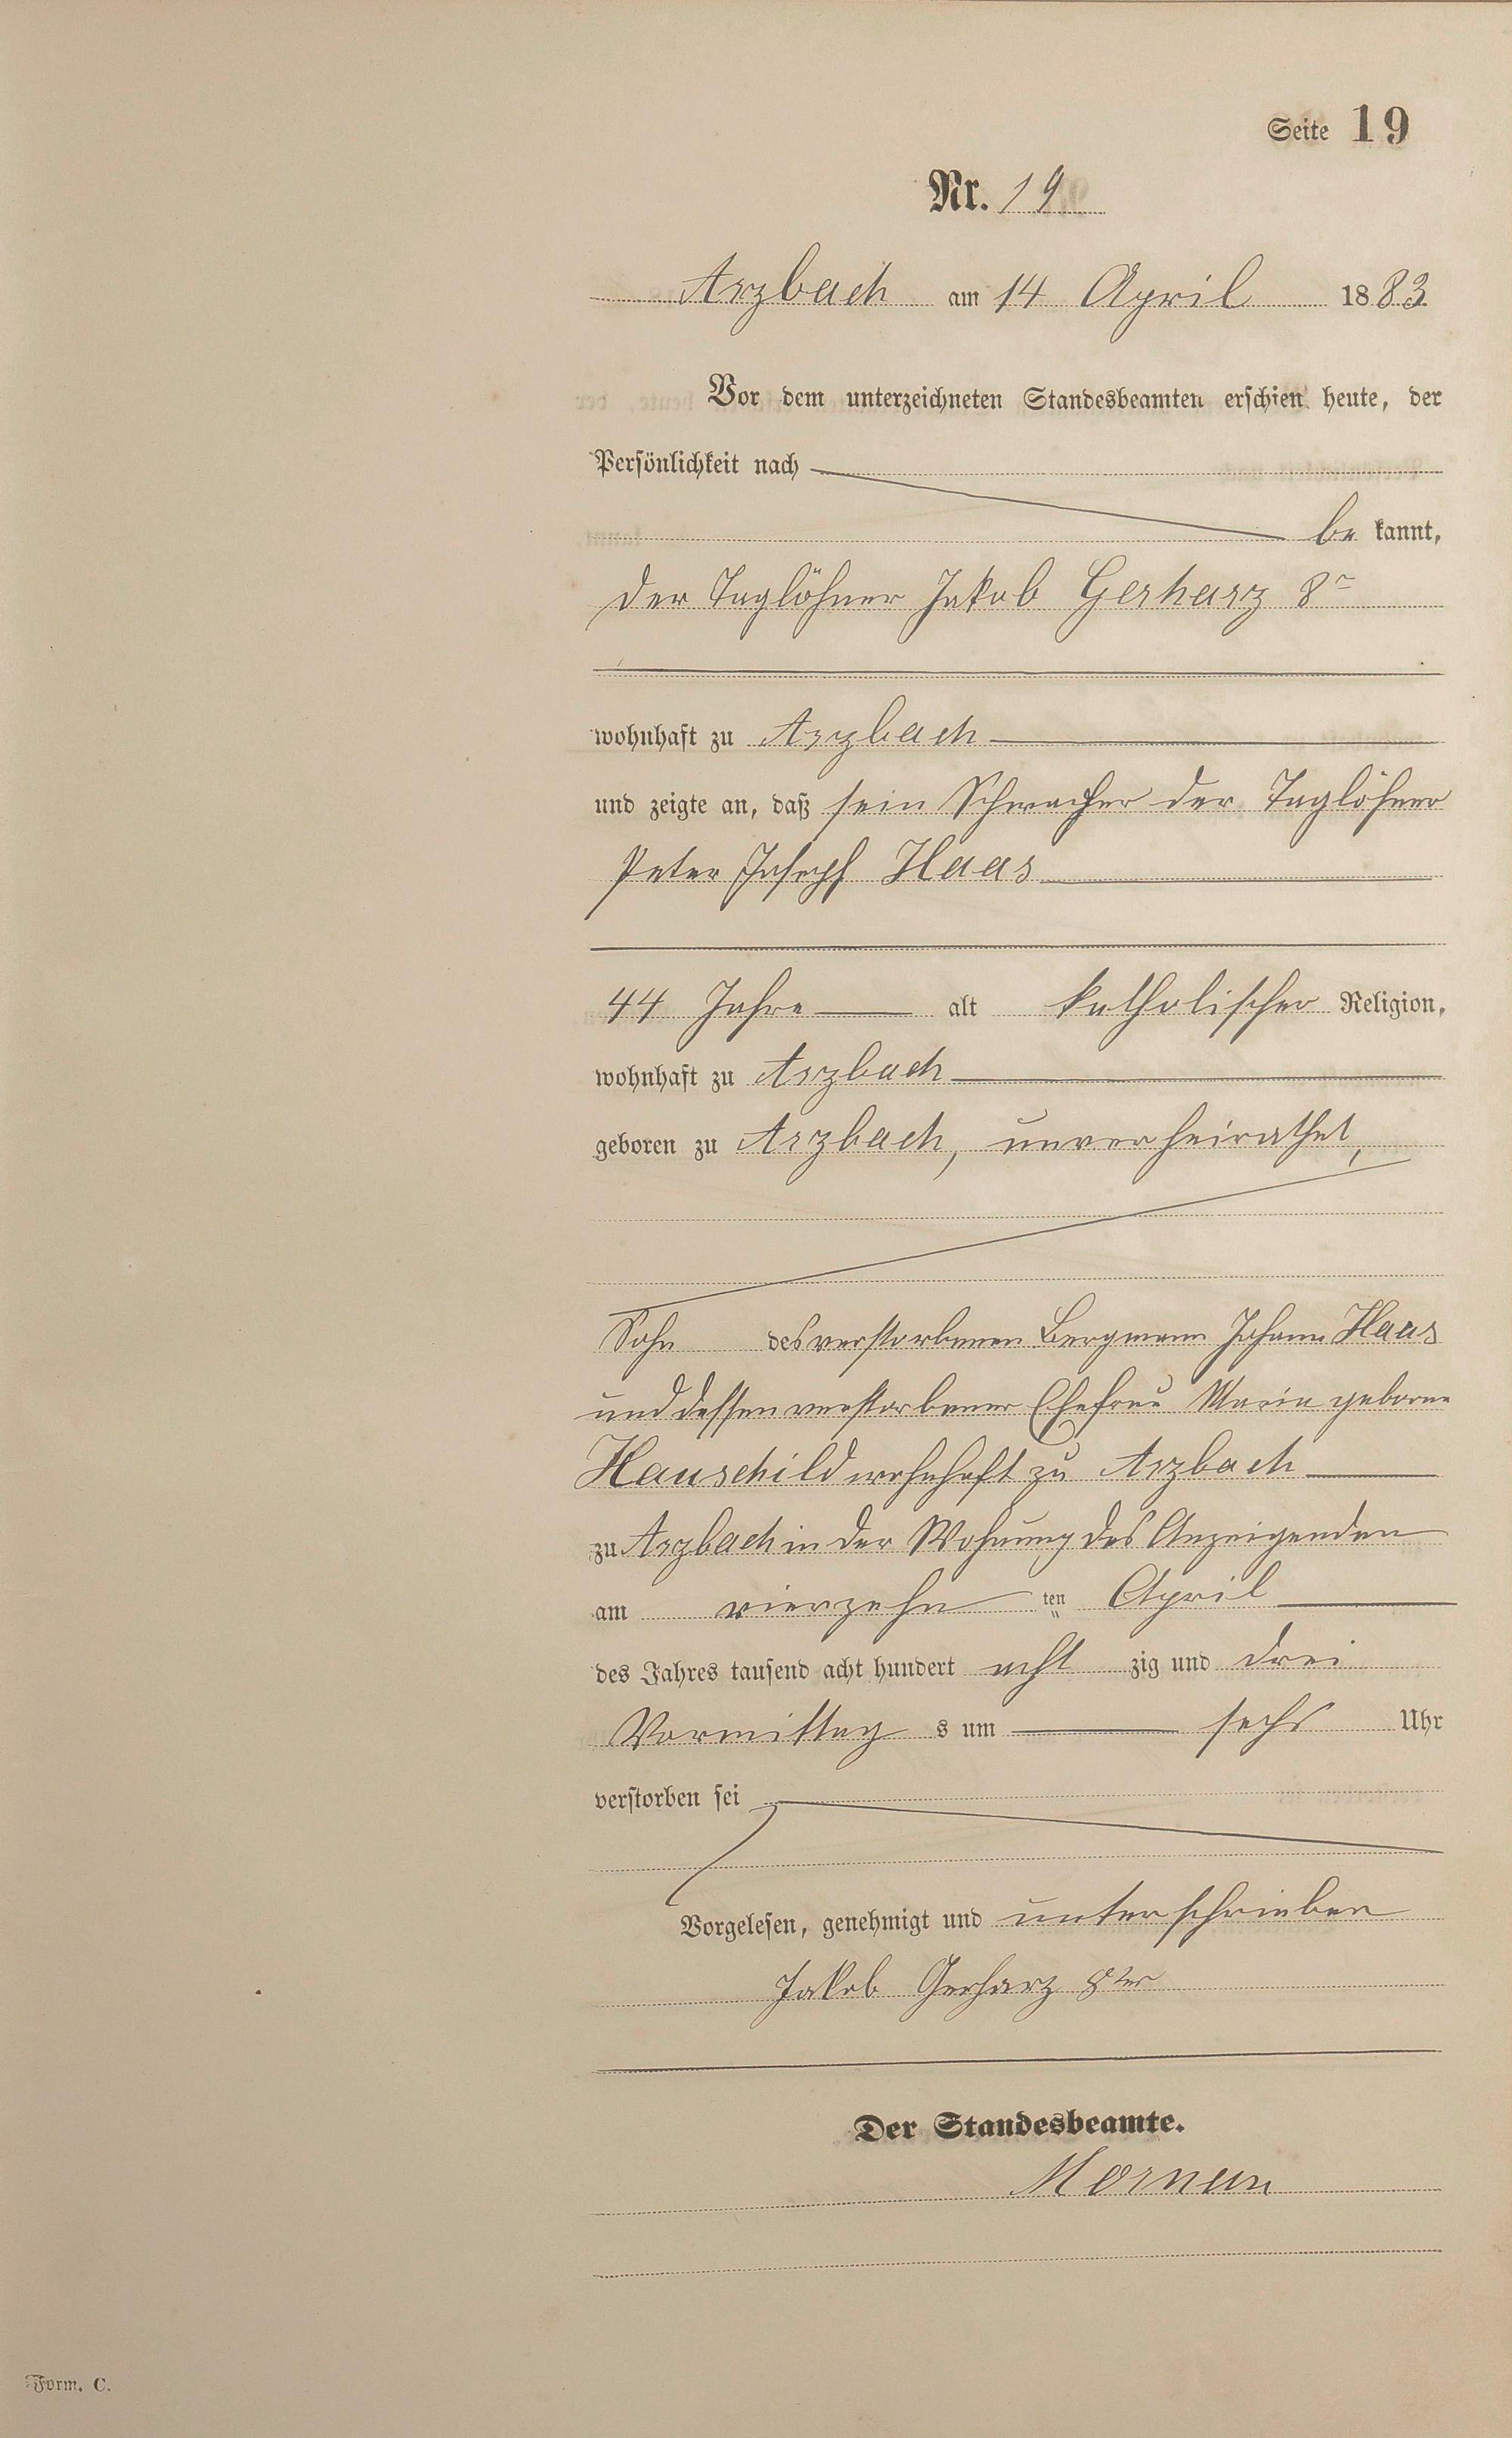 Seite 19
Nr. 19
Arzbach am 14 April 1883
Vor dem unterzeichneten Standesbeamten erschien heute, der
Persönlichkeit nach
be kannt,
der Taglöhner Jakob Gerharz 8r
wohnhaft zu Arzbach
und zeigte an, daß sein Schwacher der Taglöhner
Peter Joseph Haas
44 Jahre alt katholischer Religion,
wohnhaft zu Arzbach
geboren zu Arzbach, unverheirathet,
Sohn des verstorbenen Bergmann Johann Haas
und dessen verstorbener Ehefrau Maria geborne
Hauschild wohnhaft zu Arzbach
zu Arzbach in der Wohnung des Anzeigenden
am vierzehn ten April
des Jahres tausend acht hundert acht zig und drei
Vormittag s um sechs Uhr
verstorben sei
Vorgelesen, genehmigt und unterschrieben
Jakob Gerharz 8ter
Der Standesbeamte.
Form. C.